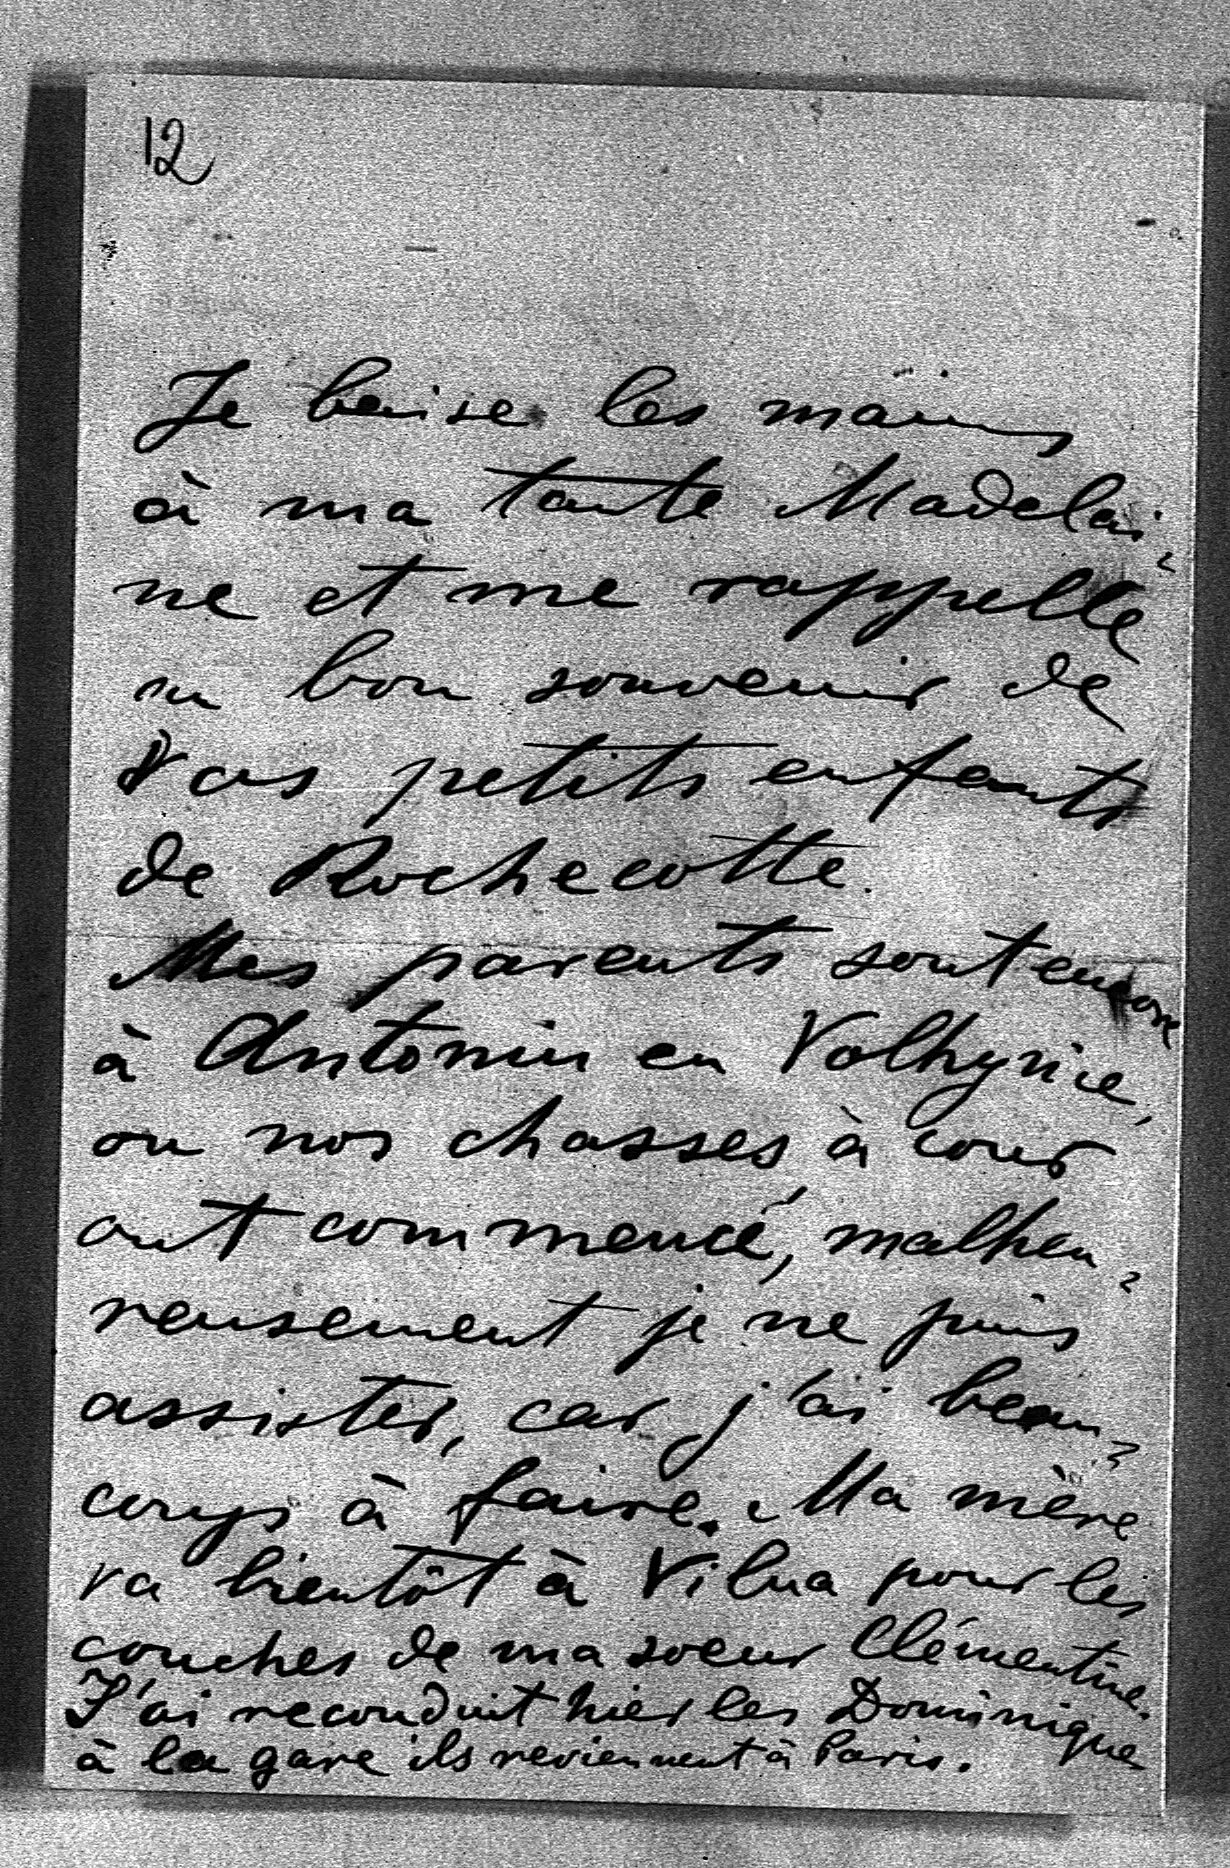 12
Je baise les mains
à ma tante Madelai-
ne et me rappelle
au bon souvenir de
Vos petits enfants
de Rochecotte.
Mes parents sont encore
à Antonin en Volhynie,
ou nos chasses à cour
ont commencé, malheu-
reusement je ne puis
assister, car j'ai beau-
coups à faire. Ma mère
va bientôt à Vilna pour les
couches de ma soeur Clémentine.
J'ai reconduit hier les Dominique
à la gare ils reviennent à Paris.